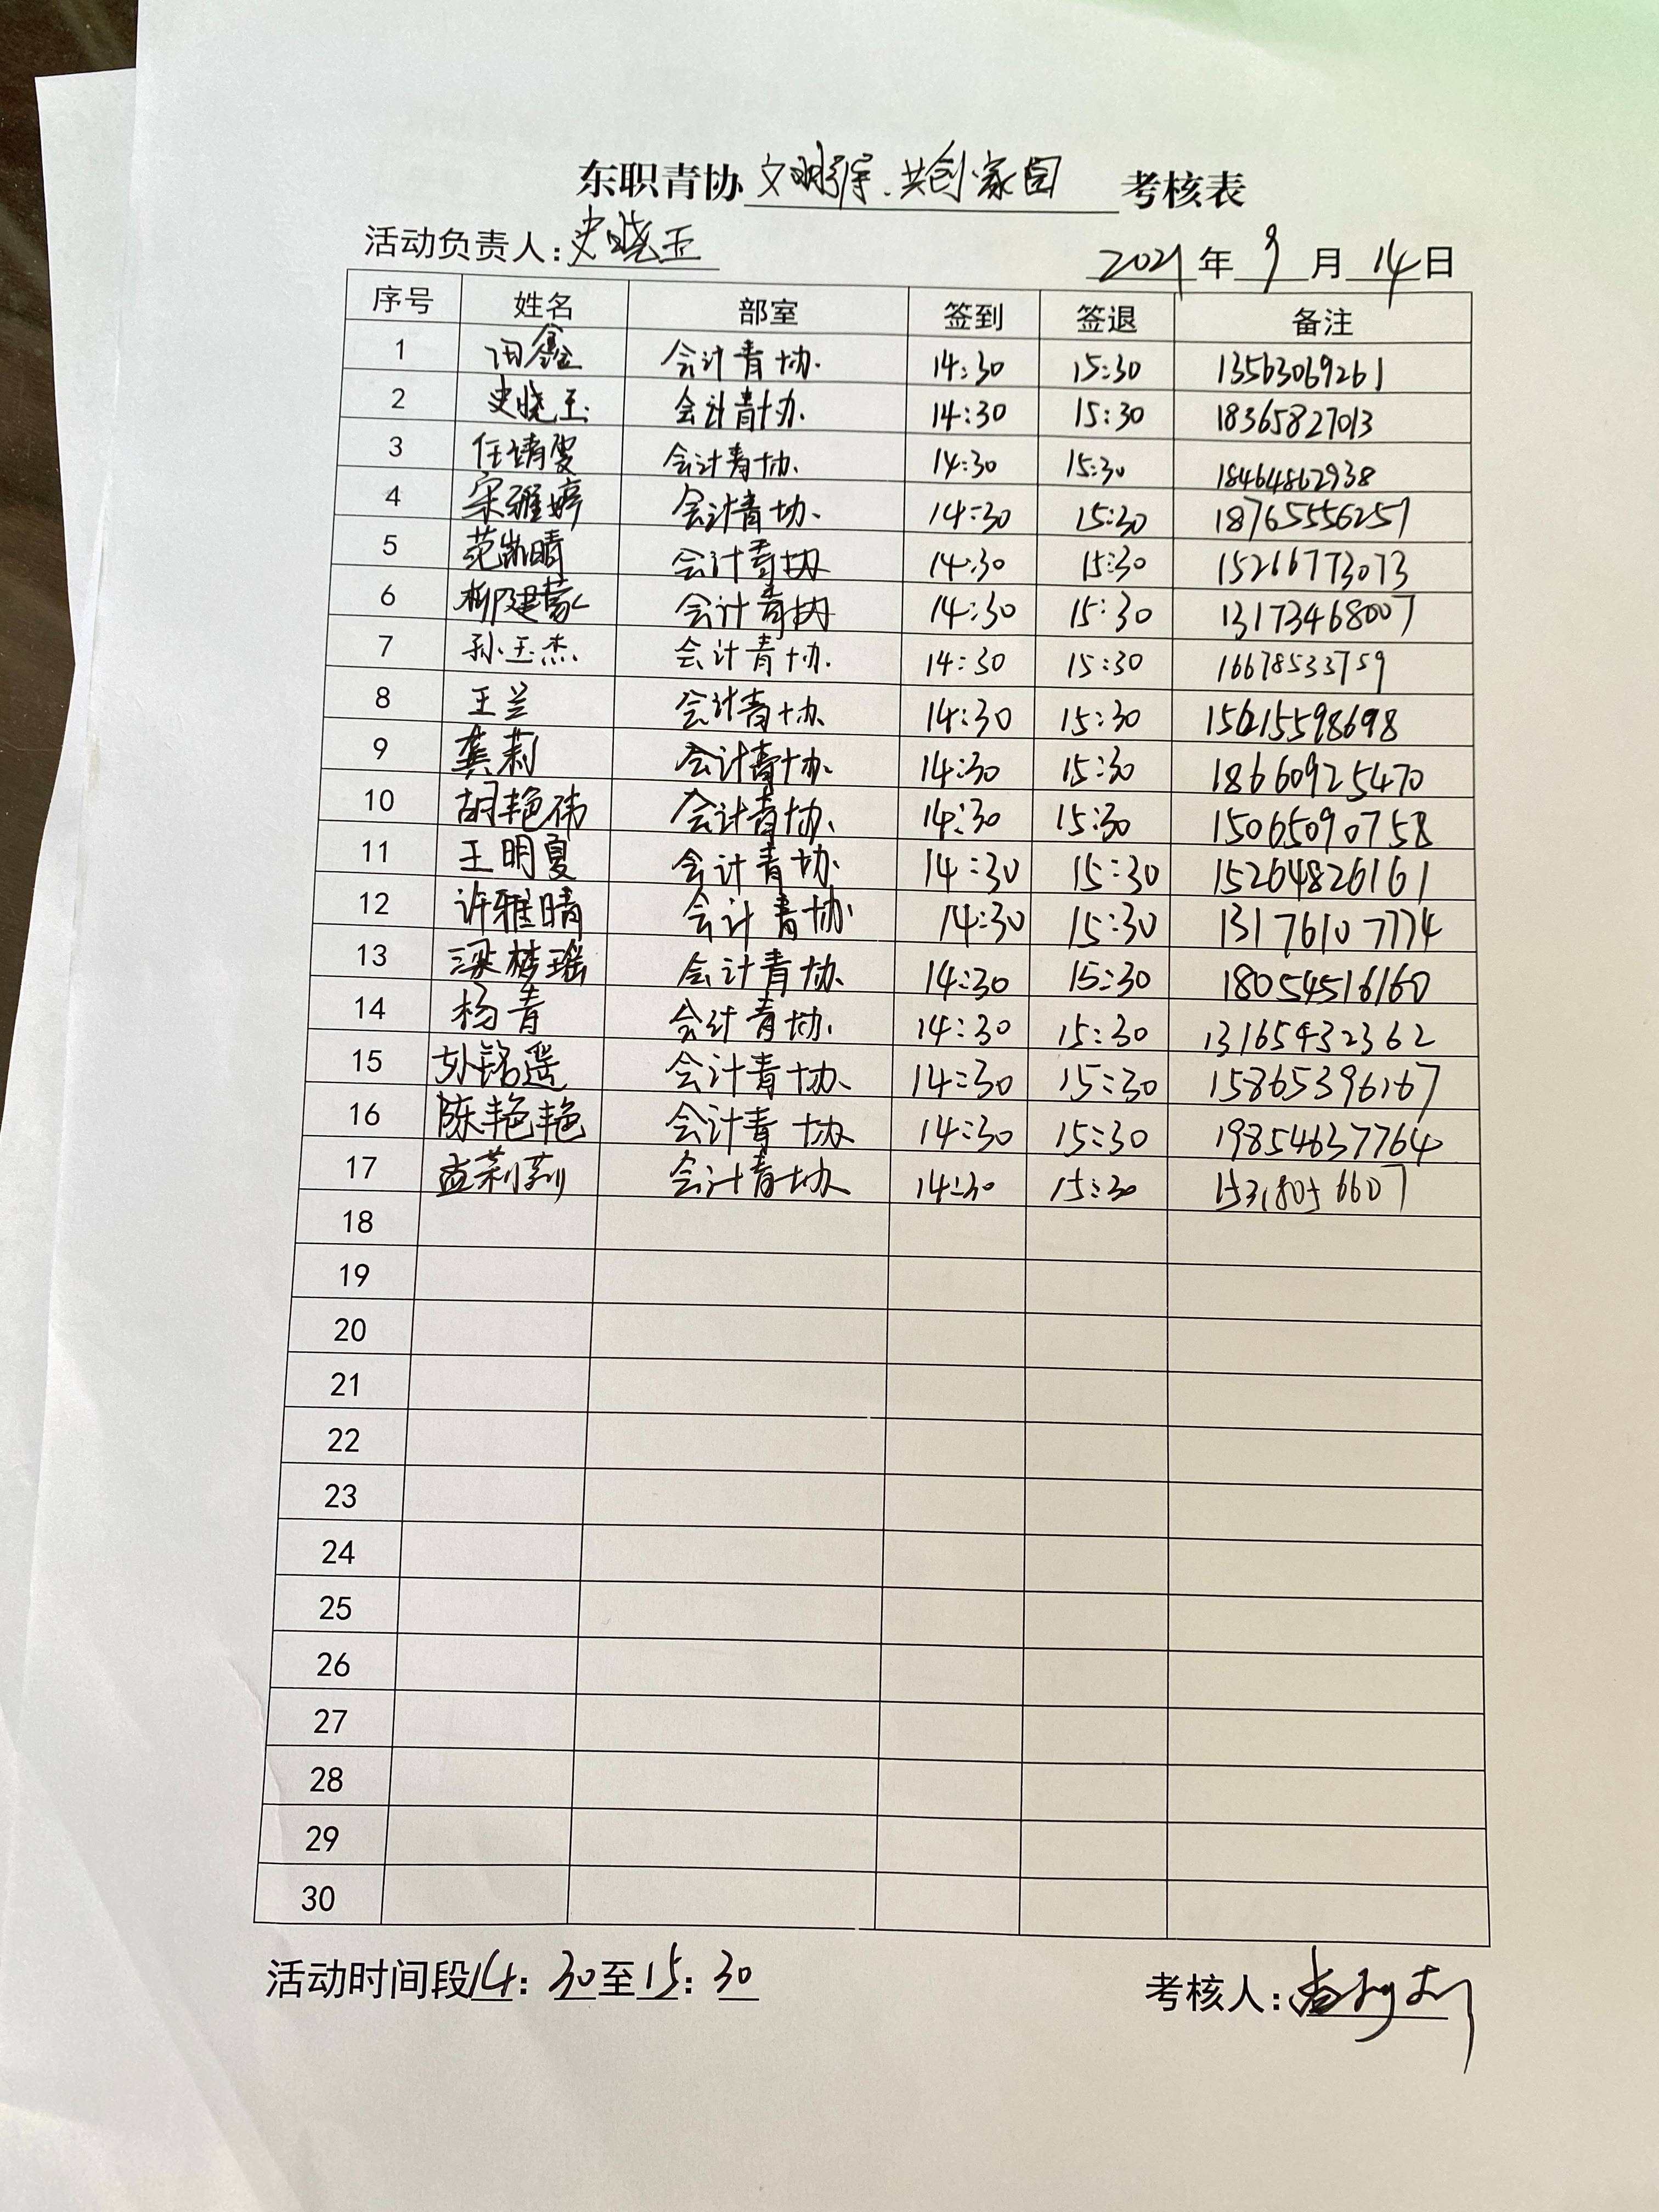 东职青协 文明、共创家园 考核表
活动负责人：史晓玉 2021年9月14日
序号 姓名 部室 签到 签退 备注
1 闫鑫 会计青协 14:30 15:30 13563069261
2 史晓玉 会计青协 14:30 15:30 18365827013
3 任靖雯 会计青协 14:30 15:30 18464862938
4 宋雅婷 会计青协 14:30 15:30 18765556257
5 范凯晴 会计青协 14:30 15:30 15266773073
6 柳建蒙 会计青协 14:30 15:30 13173468007
7 孙玉杰 会计青协 14:30 15:30 16678533759
8 王兰 会计青协 14:30 15:30
9 龚莉 会计青协 14:30 15:30 18660925470
10 胡艳伟 会计青协 14:30 15:30 15065090758
11 王明夏 会计青协 14:30 15:30 15264826161
12 许雅晴 会计青协 14:30 15:30 13176107774
13 梁梦瑶 会计青协 14:30 15:30 18054516160
14 杨青 会计青协 14:30 15:30 13165432362
15 孙铭遥 会计青协 14:30 15:30 15865396167
16 陈艳艳 会计青协 14:30 15:30 19854637764
17 孟莉莉 会计青协 14:30 15:30 15318056607
18
19
20
21
22
23
24
25
26
27
28
29
30
活动时间段14：30至15：30 考核人：